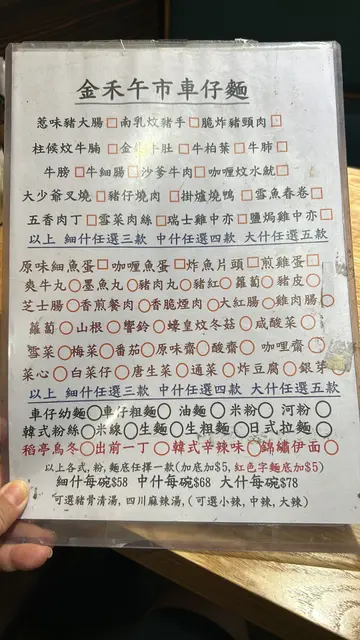 金禾午市車仔麵
惹味豬大腸□南乳炆豬手□脆炸豬頸肉□
柱候炆牛腩□金錢牛肚□牛柏葉□牛肺□
牛膀□牛細腸□沙爹牛肉□咖喱炆水魷□
大少爺叉燒□豬仔燒肉□掛爐燒鴨□雪魚春卷□
五香肉丁□雪菜肉絲□瑞士雞中亦□鹽焗雞中亦□
以上 細什任選三款 中什任選四款 大什任選五款
原味細魚蛋□咖喱魚蛋□炸魚片頭□煎雞蛋□
爽牛丸○墨魚丸○豬肉丸○豬紅○蘿蔔○豬皮○
芝士腸○香煎餐肉○香脆煙肉○大紅腸○雞肉腸○
蘿蔔○山根○響鈴○蠔皇炆冬菇○咸酸菜○
雪菜○梅菜○番茄○原味齋○酸齋○咖喱齋○
菜心○白菜仔○唐生菜○通菜○炸豆腐○銀芽○
以上 細什任選三款 中什任選四款 大什任選五款
車仔幼麵○車仔粗麵○油麵○米粉○河粉○
韓式粉絲○米線○生麵○生粗麵○日式拉麵○
稻亭烏冬○出前一丁○韓式辛辣味○錦繡伊面○
以上各式,粉,麵底任擇一款(加底加$5,紅色字麵底加$5)
細什每碗$58 中什每碗$68 大什每碗$78
可選豬骨清湯,四川麻辣湯,(可選小辣,中辣,大辣)